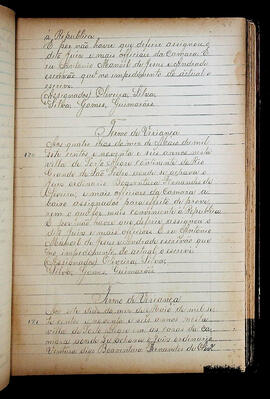 a Republica
E por não haver que deferir assignou o
dito Juiz e mais officiaes da Camara E
eu Antonio Manoel de Jesus e Andrade
escrivão que no impedimento do actual o
escrevi
(Assignados) Oliveira, Silva,
Silva, Gomes, Guimarães
Termo de Vriança
170 Aos quatro dias do mez de Maio de mil
sete centos e noventa e seis annos nesta
villa de Porto Alegre Continente do Rio
Grande de São Pedro aonde se achava o
Juiz ordinario Boaventura Fernandes de
Oliveira, e mais officiaes da Camara a
baixo assignados para effeito de prove
rem o que for mais conveniente a Republica
E por não haver que deferir assignou o
dito Juiz e mais officiaes E eu Antonio
Manoel de Jesus e Andrade escrivão que
no impedimento do actual o escrevi
(Assignados) Oliveira, Silva,
Silva, Gomes, Guimarães
Termo de Vriança
171 Aos sete dias do mez de Maio de mil se
te centos e noventa e seis annos nesta
villa de Porto Alegre em as casas da Ca
mara aonde se achava o Juiz ordinario
Boaventura Fernandes de Oliv.